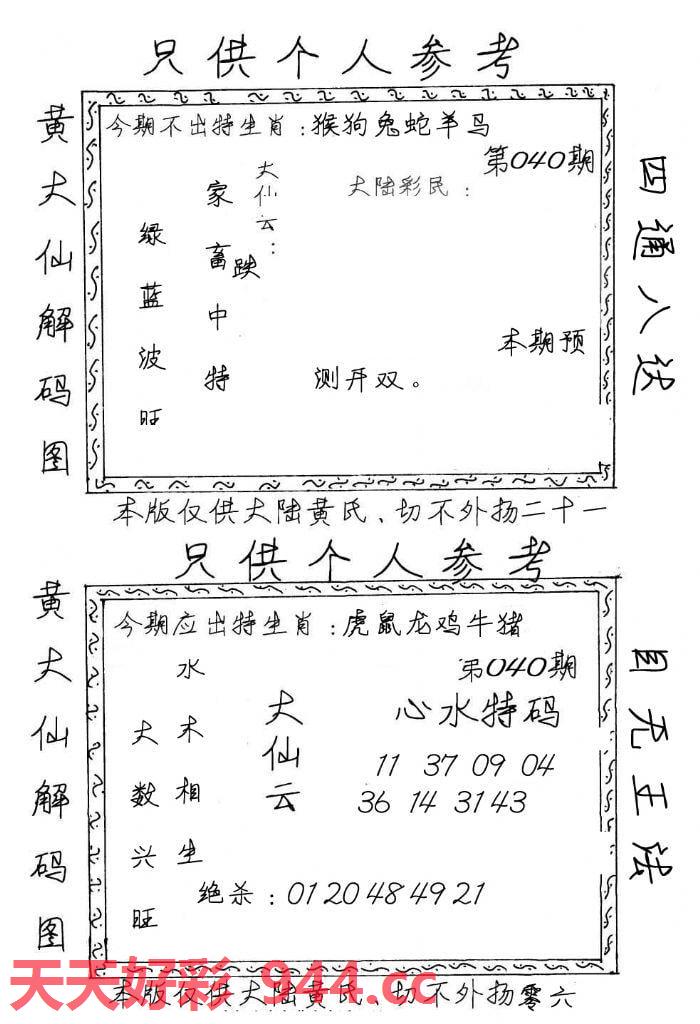 只供个人参考
黄大仙解码图
今期不出特生肖：猴狗兔蛇羊马
第040期
大仙云：
大陆彩民：
家畜中特
跌
绿蓝波旺
本期预
测开双。
四通八达
本版仅供大陆黄氏、切不外扬二十一
只供个人参考
黄大仙解码图
今期应出特生肖：虎鼠龙鸡牛猪
第040期
水木相生
大数兴旺
大仙云
心水特码
11 37 09 04
36 14 31 43
绝杀：01 20 48 49 21
目无王法
天天好彩 944.cc
本版仅供大陆黄氏、切不外扬零六